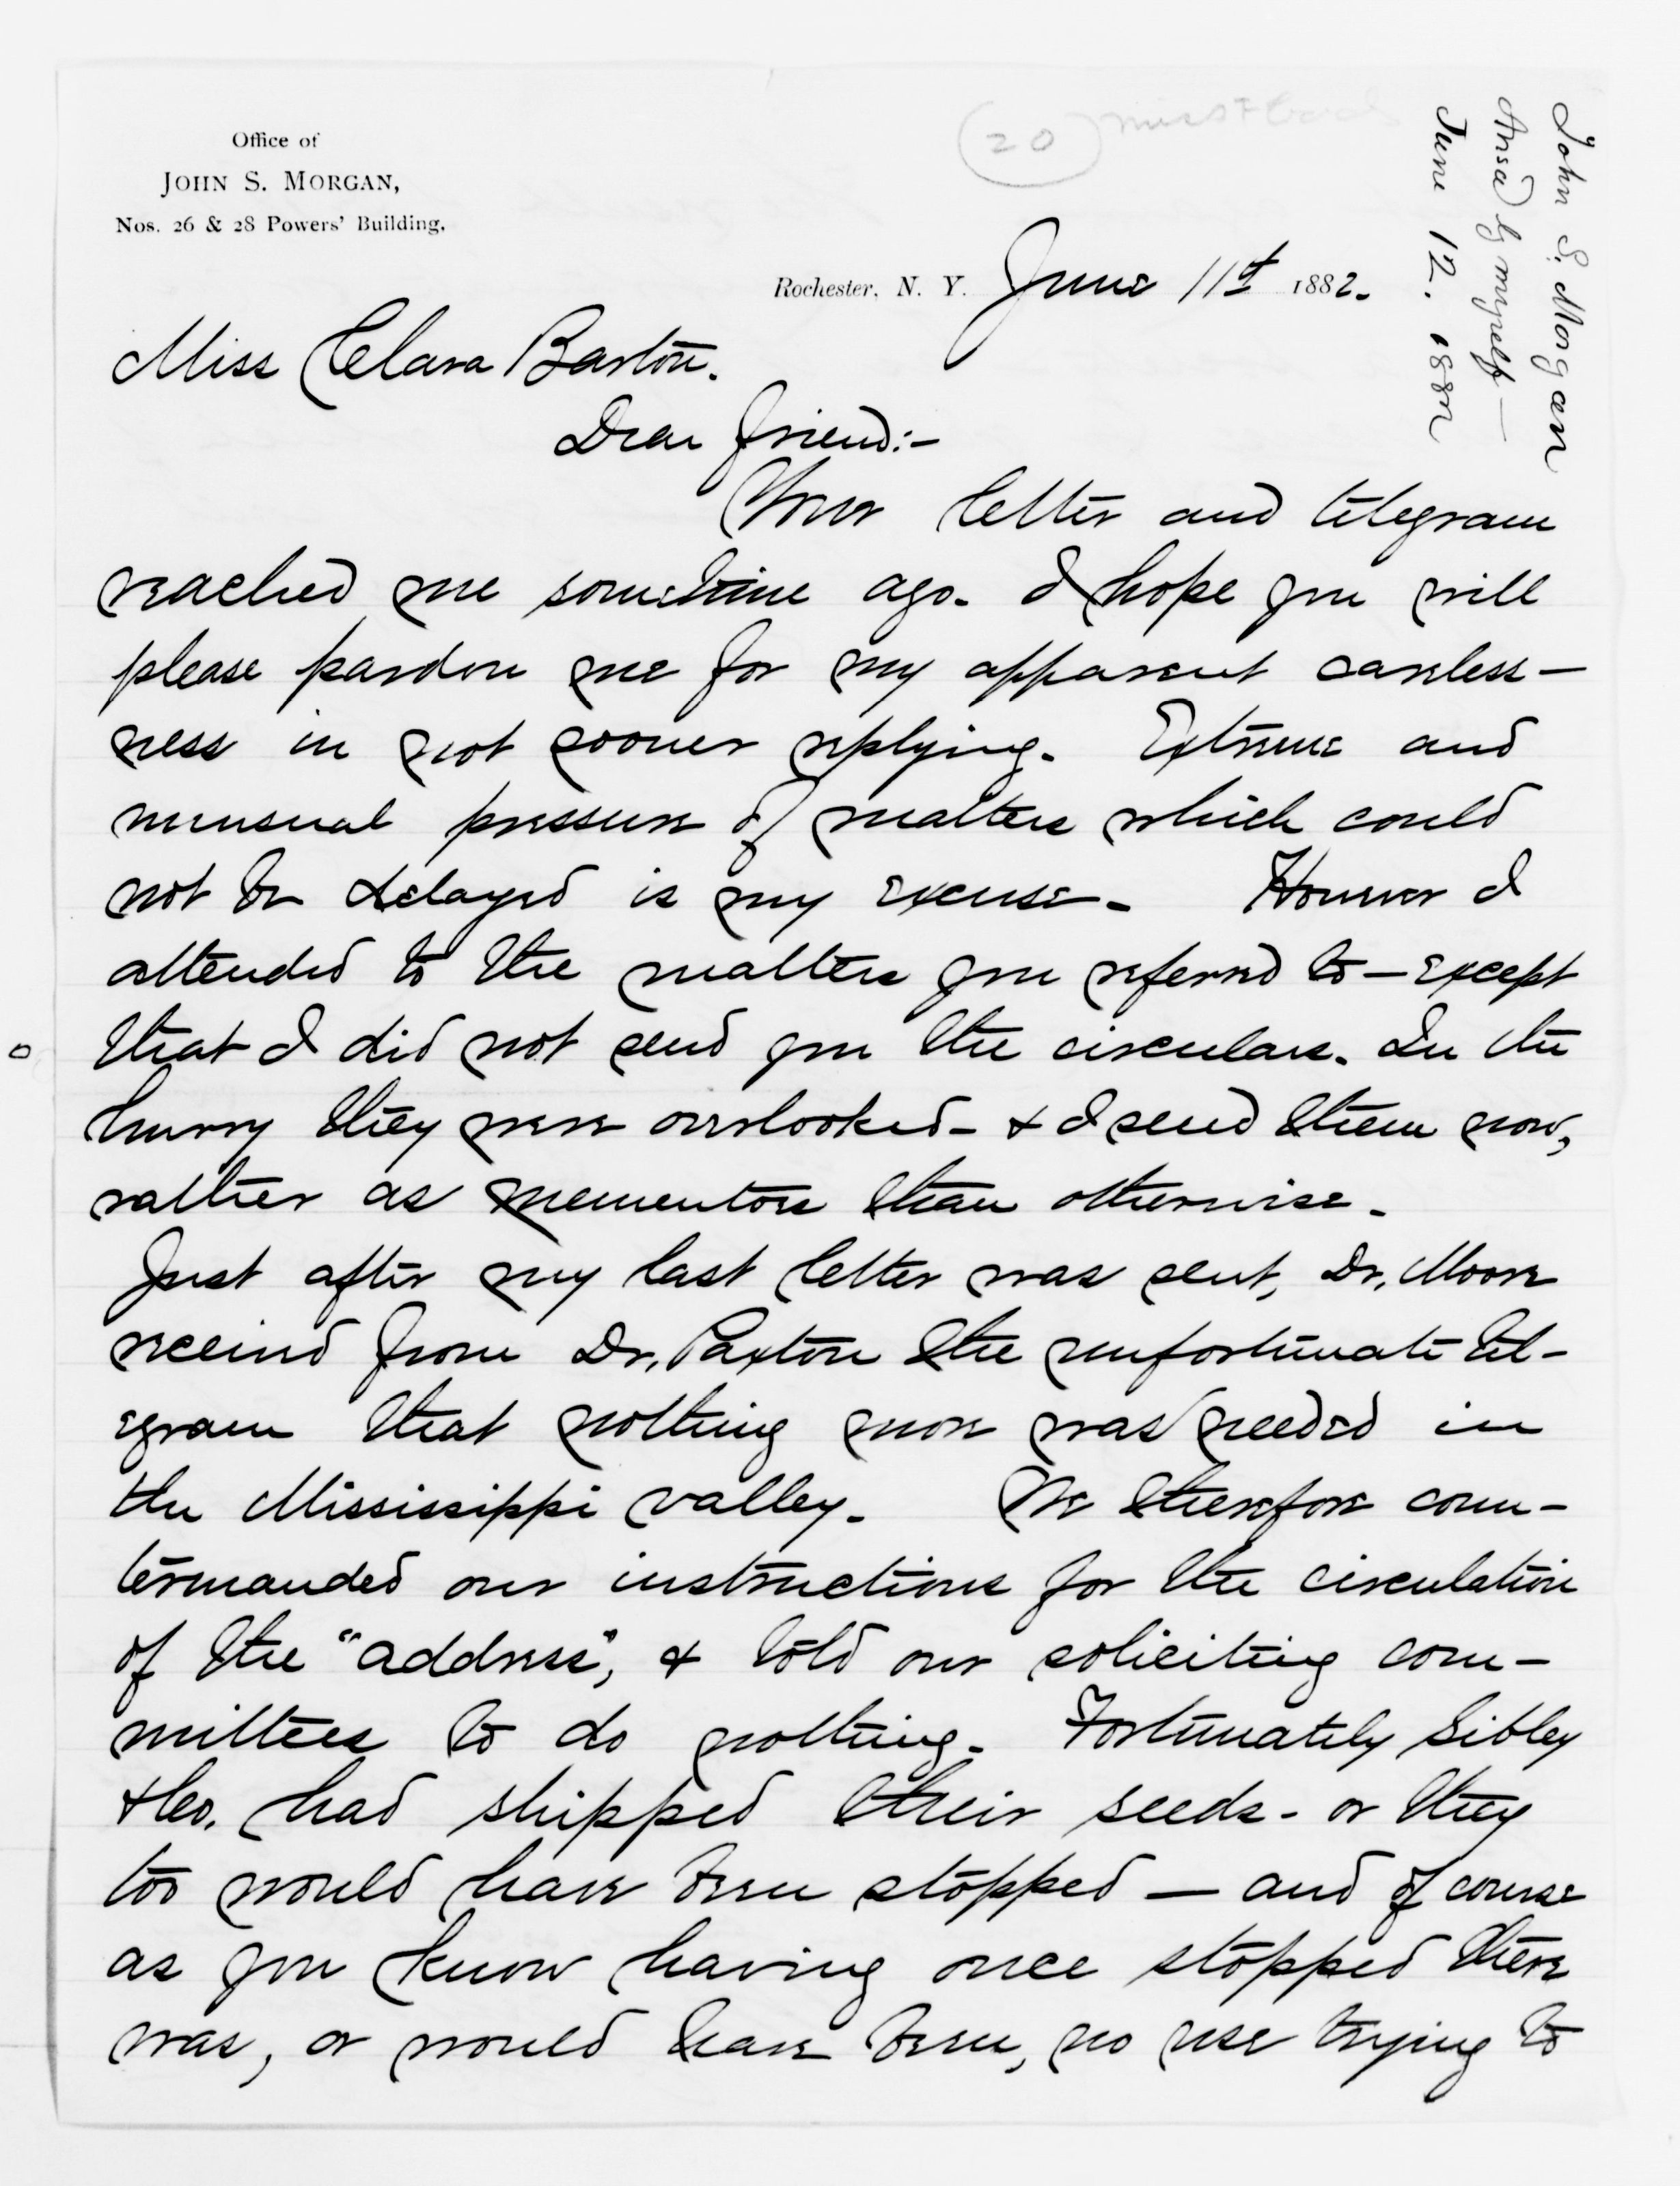 Office of
JOHN S. MORGAN,
Nos. 26 & 28 Powers' Building.
(20)
John S. Morgan
Ansd by myself —
June 12. 1882
Rochester, N. Y. June 11st 1882.
Miss Clara Barton.
Dear friend:-
Your letter and telegram
reached me sometime ago. I hope you will
please pardon me for my apparent careless-
ness in not sooner replying. Extreme and
unusual pressure of matters which could
not be delayed is my excuse. However I
attended to the matters you referred to — except
that I did not send you the circulars. In the
hurry they were overlooked - & I send them now,
rather as mementors than otherwise.
Just after my last letter was sent, Dr. Moore
received from Dr. Paxton the unfortunate tel-
egram that nothing more was needed in
the Mississippi valley. We therefore coun-
termanded our instructions for the circulation
of the "address", & told our soliciting com-
mittees to do nothing. Fortunately Sibley
& Co. had shipped their seeds - or they
too would have been stopped — and of course
as you know having once stopped there
was, or would have been, no use trying to